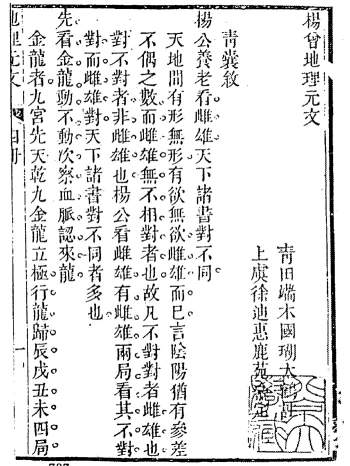 楊曾地理元文
青田端木國瑚太
上虞徐迪惠鹿苑
青囊敘
楊公養老看雌雄天下諸書對不同
天地間有形無形有欲無欲雌雄而已言陰陽猶有參差
不偶之數而雌雄無不相對者也故凡不對對者雌雄也
對不對者非雌雄也楊公看雌雄有雌雄兩局看其不對
對而雌雄對天下諸書對不同者多也
先看金龍動不動次察血脈認來龍
金龍者九宮先天乾九金龍立極行龍歸辰戌丑未四局
地理元文